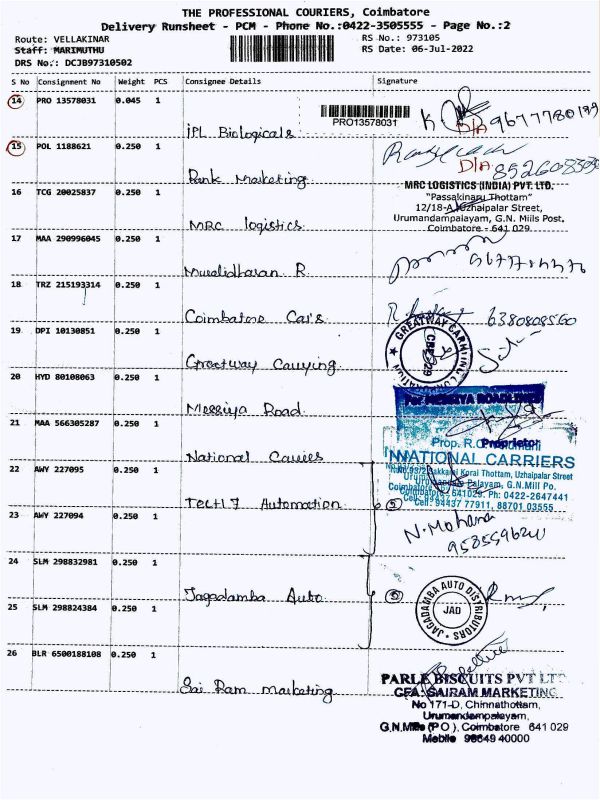 THE PROFESSIONAL COURIERS, Coimbatore
Delivery Runsheet - PCM - Phone No.:0422-3505555 - Page No.:2
Route: VELLAKINAR
RS No.: 973105
Staff: MARIMUTHU
RS Date: 06-Jul-2022
DRS No.: DCJB97310502
S No Consignment No Weight PCS Consignee Details Signature
14 PRO 13578031 0.045 1
PRO13578031
iPL Biologicals
D/A 9677780199
15 POL 1188621 0.250 1
Rank Marketing
D/A
16 TCG 20025837 0.250 1
MRC logistics
MRC LOGISTICS (INDIA) PVT. LTD.
"Passakinaru Thottam"
12/18-A, Uzhaipalar Street,
Urumandampalayam, G.N. Mills Post,
Coimbatore - 641 029.
17 MAA 290996045 0.250 1
Muralidharan R.
18 TRZ 215193314 0.250 1
Coimbatore Car's
6380808560
19 DPI 10130851 0.250 1
Greatway Carrying
GREATWAY CARRYING CORPORATION
CBE-29
20 HYD 80108063 0.250 1
Messiya Road
For MESSIYA ROADLINES
Proprietor
21 MAA 566305287 0.250 1
National Carries
Prop. R.
NATIONAL CARRIERS
Korai Thottam, Uzhaipalar Street
Palayam, G.N.Mill Po.
Coimbatore - 641029. Ph: 0422-2647441
Cell: 94437 77911, 88701 03555
22 AWY 227095 0.250 1
TECH 7 Automation
23 AWY 227094 0.250 1
N. Mohana
24 SLM 298832981 0.250 1
Jagadamba Auto
JAGADAMBA AUTO DISTRIBUTORS
JAD
25 SLM 298824384 0.250 1
26 BLR 6500188108 0.250 1
Sai Ram marketing
PARLE BISCUITS PVT LTD
CFA: SAIRAM MARKETING
No 171-D, Chinnathottam,
Urumandampalayam,
G.N.Mills (P.O), Coimbatore 641 029
Mobile 98649 40000